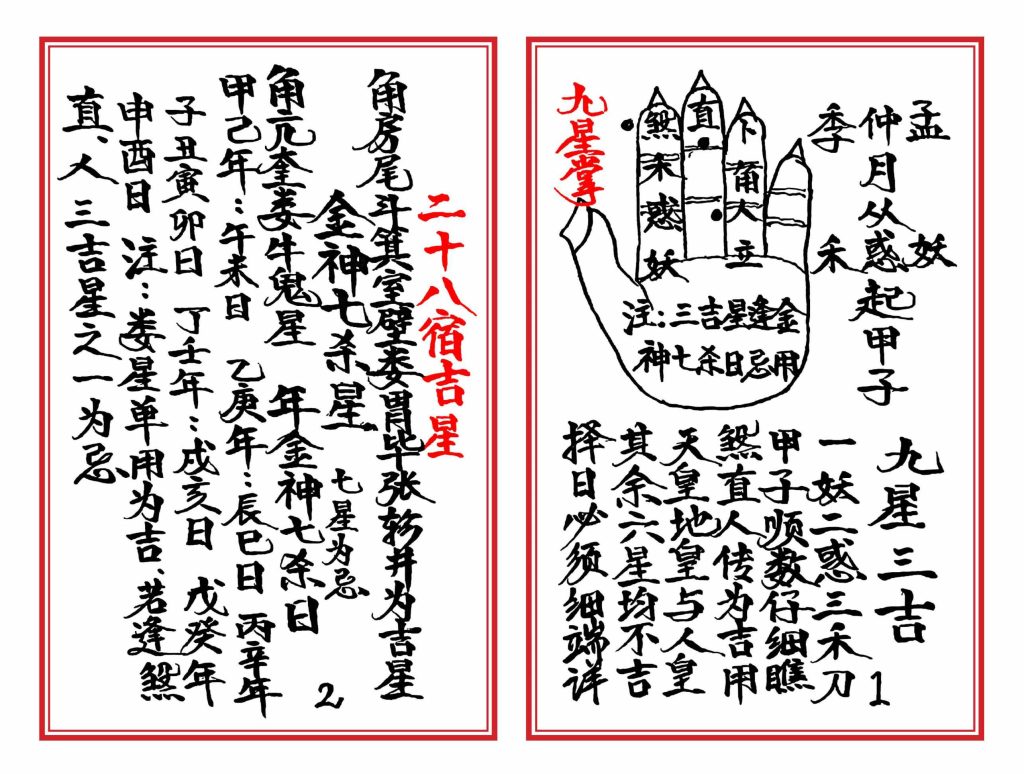 孟 妖
仲月从惑起甲子
季 禾
九星掌
煞禾惑妖
直
卜角人立
注:三吉星逢金
神七杀日忌用
九星三吉
一妖二惑三禾刀
甲子顺数仔细瞧
煞直人传为吉用
天皇地皇与人皇
其余六星均不吉
择日必须细端详
1
二十八宿吉星
角房尾斗箕室壁娄胃毕张轸井为吉星
金神七杀星 七星为忌
角亢奎娄牛鬼星 年金神七杀日
甲己年:午未日 乙庚年:辰巳日 丙辛年
子丑寅卯日 丁壬年:戌亥日 戊癸年
申酉日 注:娄星单用为吉、若逢煞
直、人三吉星之一为忌
2